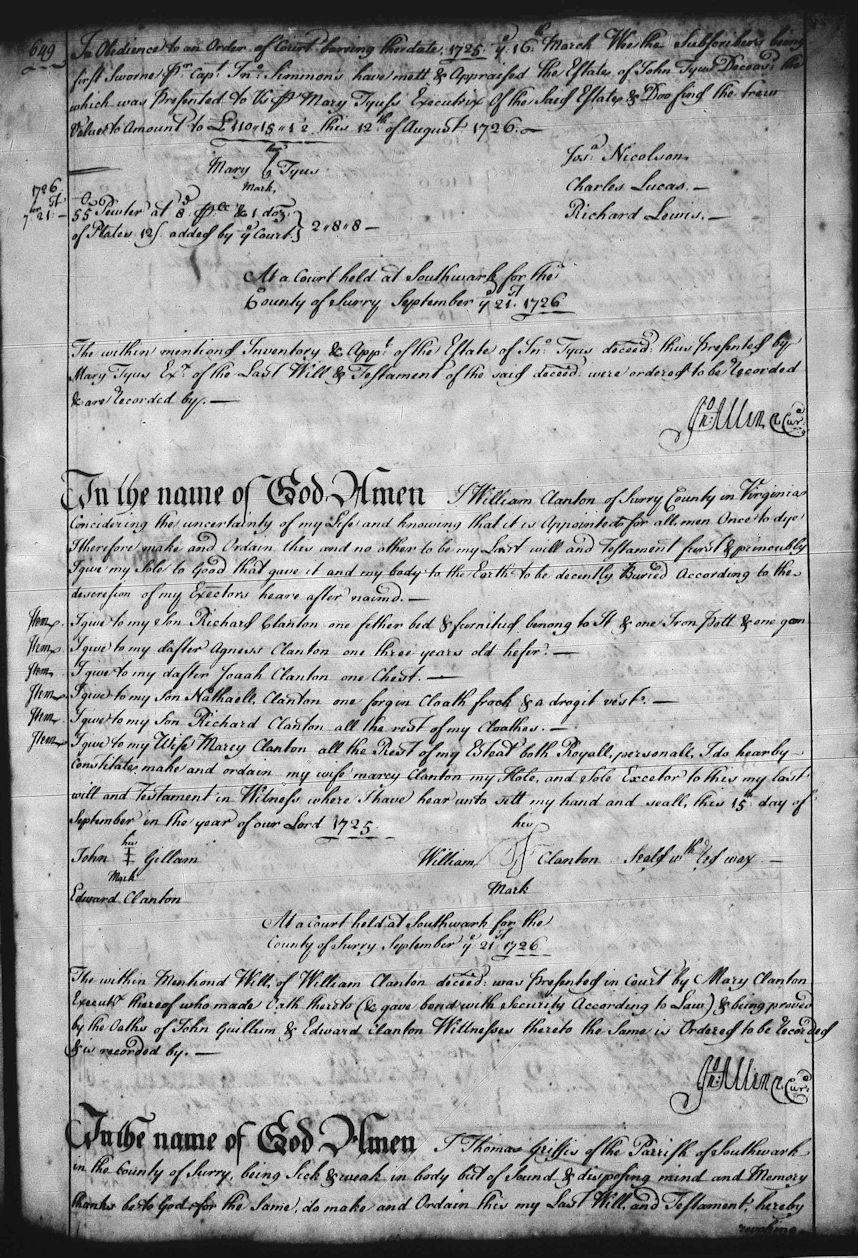 649
In Obedience to an Order of Court bearing thordate 1725 ye 16th March Wee the Subscribers being
first Sworne pr Capt Jno Simmons have mett & Appraised the Estate of John Tyus Deceasd the
which was Presented to Us pr Mary Tyuss Executrix Of the Said Estate & Doo find the treu
Value to Amount to £110〃15〃1½ this 12th of August 1726.
her
Mary Tyus
Mark,
Josa Nicolson
Charles Lucas.
Richard Lewis.
1726
7br 21st
55 Pewter at 8d pr & 1 doz:
of Plates 12/ added by ye Court.} 2〃8〃8
At a Court held at Southwark for the
County of Surry September ye 21st 1726
The within mentiond Inventory & Appt of the Estate of Jno Tyus deceed: thus Presented by
Mary Tyus Exx of the Last Will & Testament of the said deceed: were ordered to be Recorded
& are recorded by.
Jno: Allen ClCur
In the name of God Amen I William Clanton of Surry County in Virginia
Concidering the uncertainty of my Life and knowing that it is Appointed for all men Once to dye
I therefore make and Ordain this and no other to be my Last will and Testament furst & princubly
I give my Sole to God that gave it and my body to the Earth to be decently Buried According to the
discresion of my Exectors heare after naimd.
Item I give to my Son Richard Clanton one fether bed & furnitud, belong to It & one Iron Pott & one gun
Item I give to my dafter Agness Clanton one three years old hefir:
Item I give to my dafter Joaah Clanton one Chest.
Item I give to my Son Nathaell Clanton one forgin Cloath frock & a drogit vest.
Item I give to my Son Richard Clanton all the rest of my Cloathes.
Item I give to my Wife Marey Clanton all the Rest of my Esteat both Royall, personall, I do hearby
Constitates make and ordain my wife marcy Clanton my Hole, and Sole Excetor to this my last
will and Testament in Witness where I have hear unto sett my hand and seall, this 15th day of
September in the year of our Lord 1725
his
John Gillam
Mark
Edward Clanton
his
William Clanton Seald wth red wax
Mark
At a Court held at Southwark for the
County of Surry September ye 21st 1726
The within Mentiond Will, of William Clanton deceed: was Presented in Court by Mary Clanton
Executx thereof who made Oath thereto (& gave bond with Security According to Law) & being proved
by the Oaths of John Guillum & Edward Clanton Wittnesses thereto the Same is Ordered to be Recorded
& is recorded by.
Jno: Allen ClCur
In the name of God Amen I Thomas Griffis of the Parrish of Southwark
in the County of Surry, being Sick & weak in body but of Sound & disposing mind and Memory
thanks be to God for the Same, do make and Ordain this my Last Will, and Testament, hereby
revoking